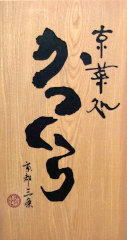 京華処
かつくら
京都三条